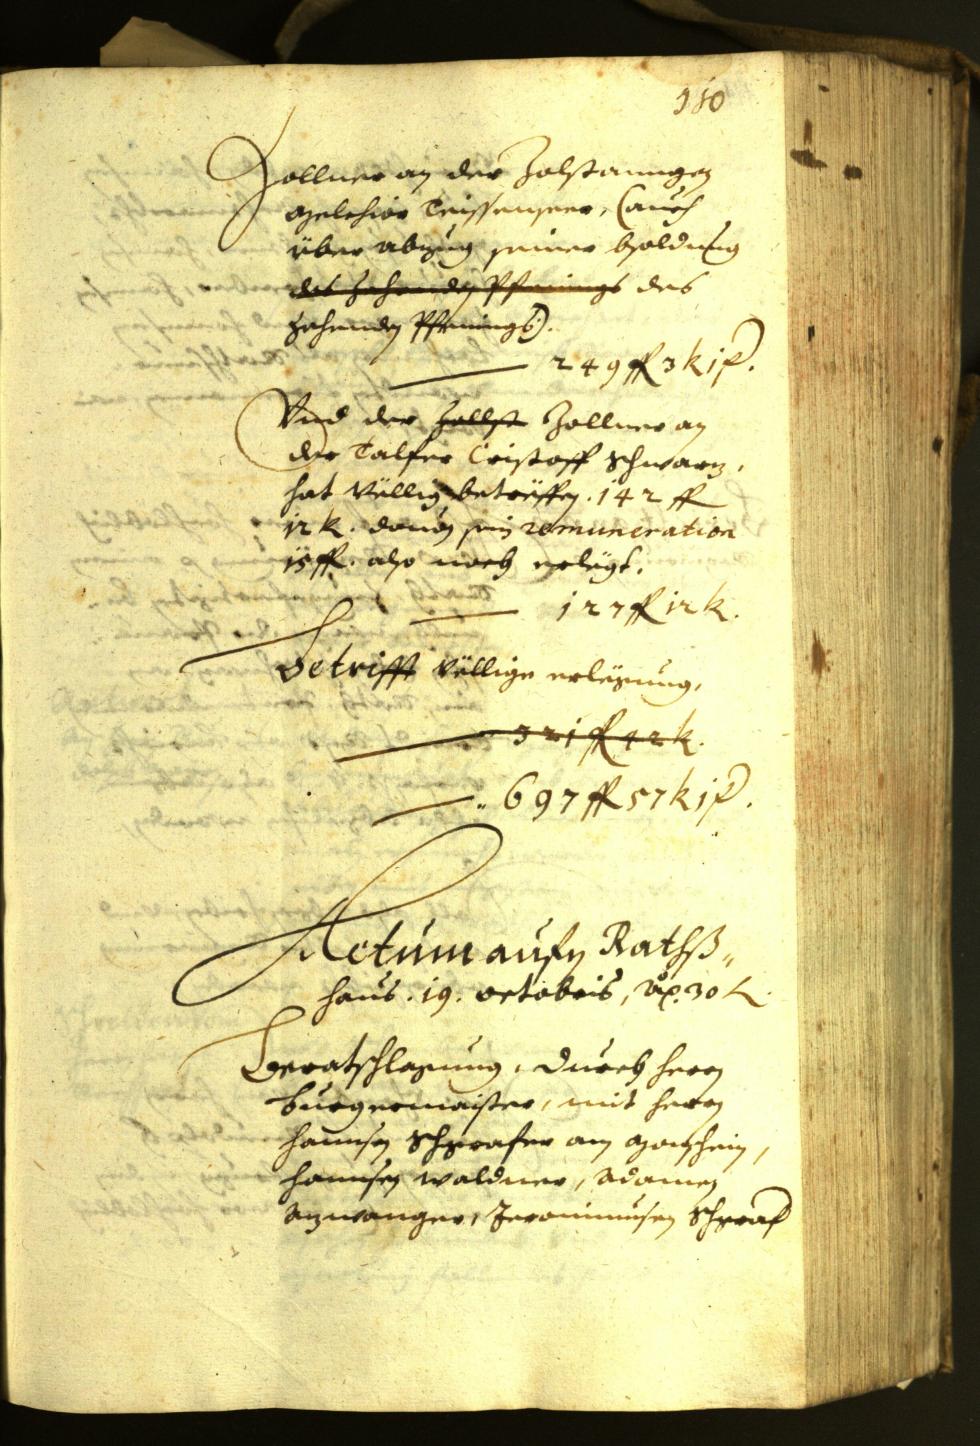 110
Zollner an der Zolstanngen
Melchior Teissenseer, (auch
über abzug seiner bsoldung
des zehenden Pfennings des
zehenden Pfennings).
249 fl 3 k 1 p.
Vnd der Zollst Zollner an
der Talfer Cristoff Schwarz,
hat Völlig betreffen. 142 fl
12 k. dauon sein remuneration
15 fl. also noch erlegt.
127 fl 12 k.
Betrifft Völlige erlegung,
321 fl 42 k.
697 fl 57 k 1 p.
Actum aufm Rathß„
haus. 19. octobris, 30
Beratschlagung, durch herrn
burgermaister, mit herrn
hannsen Schgrafer am
hannsen waldner, Adamen
Jeronimusen Schgraf